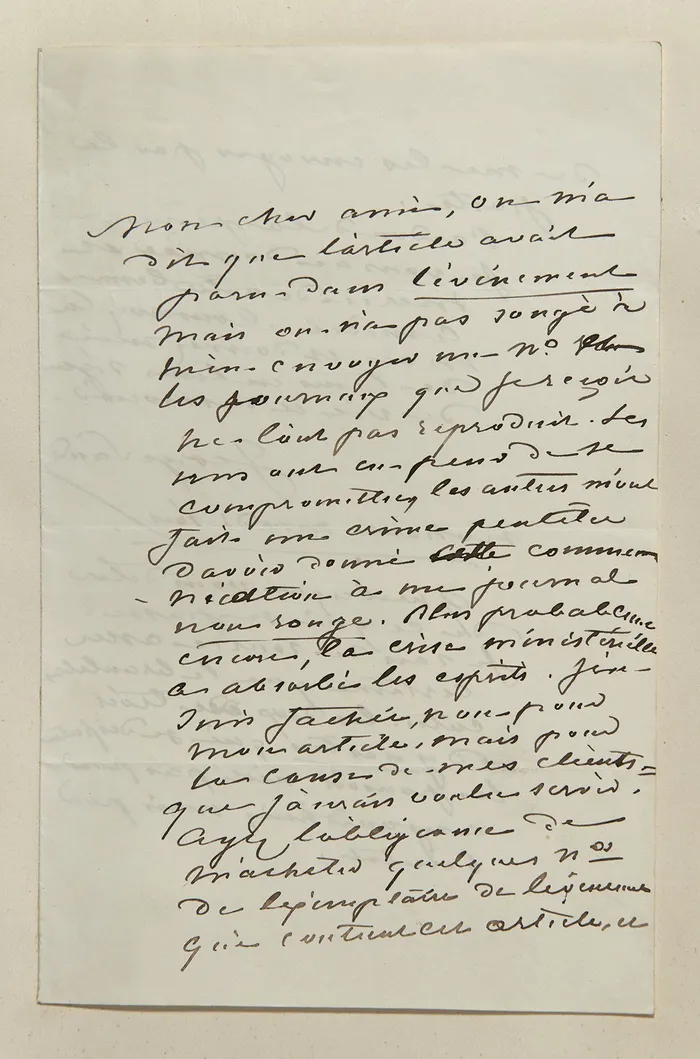 Mon cher ami, on m'a
dit que l'article avait
paru dans l'événement
mais on n'a pas songé à
m'en envoyer un no
les journaux que je reçois
ne l'ont pas reproduit. Les
uns ont eu peur de se
compromettre, les autres m'ont
fait un crime peutêtre
d'avoir donné cette commu
nication à un journal
non rouge. Plus probablement
encore, la crise ministérielle
a absorbé les esprits. J'en
suis fachée, non pour
mon article, mais pour
la cause de mes clients
que j'aurais voulu servir.
Ayez l'obligeance de
m'acheter quelques nos
de l'exemplaire de l'événement
qui contient cet article, et